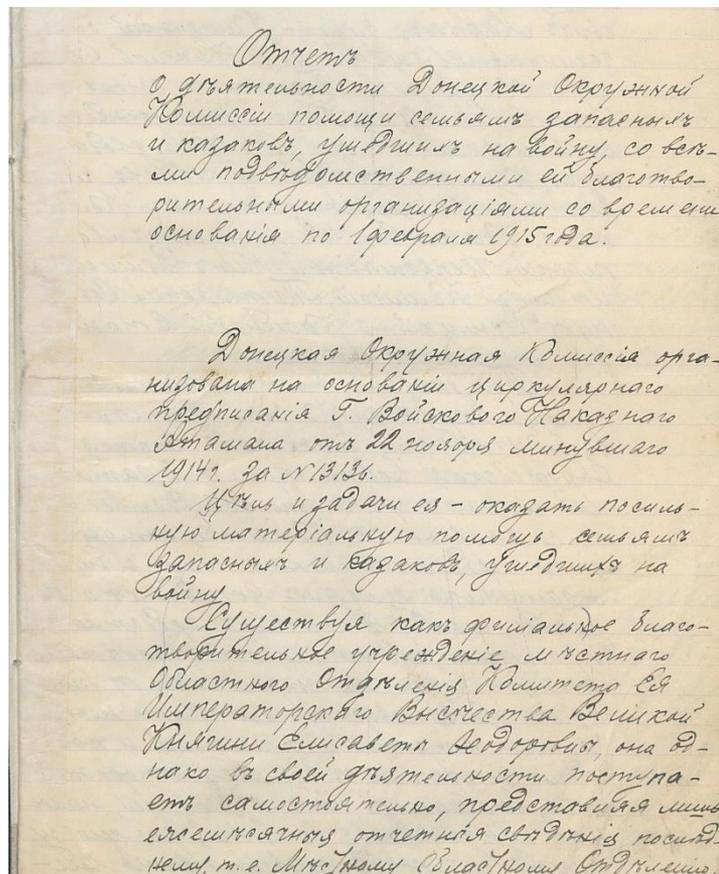 Отчетъ
о дѣятельности Донецкой Окружной
Комиссіи помощи семьямъ запасныхъ
и казаковъ, ушедшихъ на войну, со всѣ-
ми подвѣдомственными ей благотво-
рительными организаціями со времени
основанія по 1 февраля 1915 года.
Донецкая Окружная Комиссія орга-
низована на основаніи циркулярнаго
предписанія Г. Войскового Наказнаго
Атамана отъ 22 ноября минувшаго
1914 г. за № 13136.
Цѣль и задачи ея - оказать посиль-
ную матеріальную помощь семьямъ
запасныхъ и казаковъ, ушедшихъ на
войну
Существуя какъ филіальное благо-
творительное учрежденіе мѣстнаго
Областного Отдѣленія Комитета Ея
Императорскаго Высочества Великой
Княгини Елисаветы Ѳеодоровны, она од-
нако въ своей дѣятельности поступа-
етъ самостоятельно, представляя лишь
ежемѣсячныя отчетныя свѣдѣнія послѣд-
нему, т.е. Мѣстному Областному Отдѣленію.